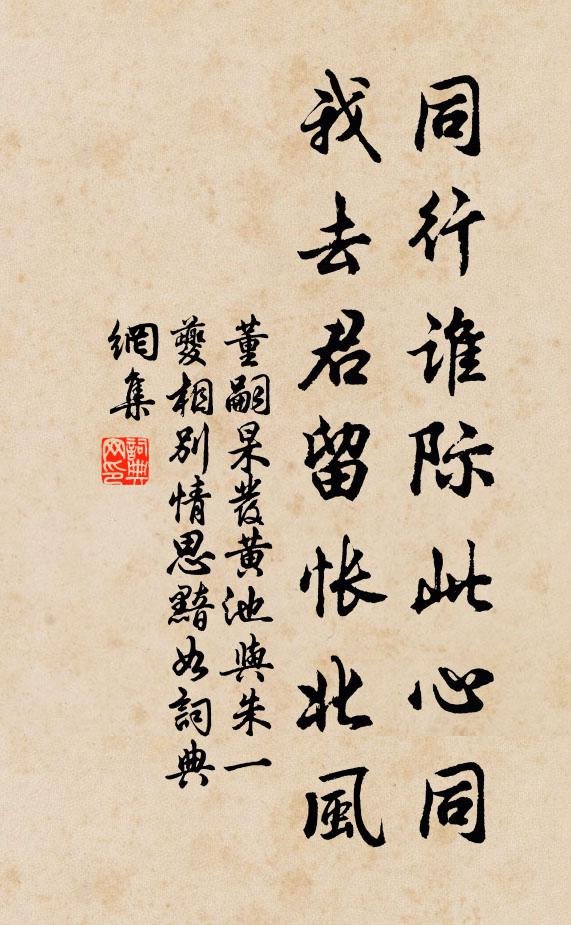 同行谁际此心同
我去君留怅北風
董嗣杲發黄池與朱一
夔相别情思黯如詞典
網集
詞典
网印